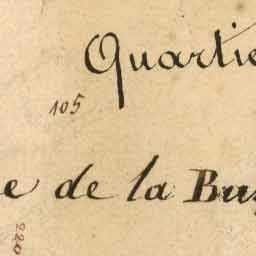 Quartie
105
e de la Bus
220